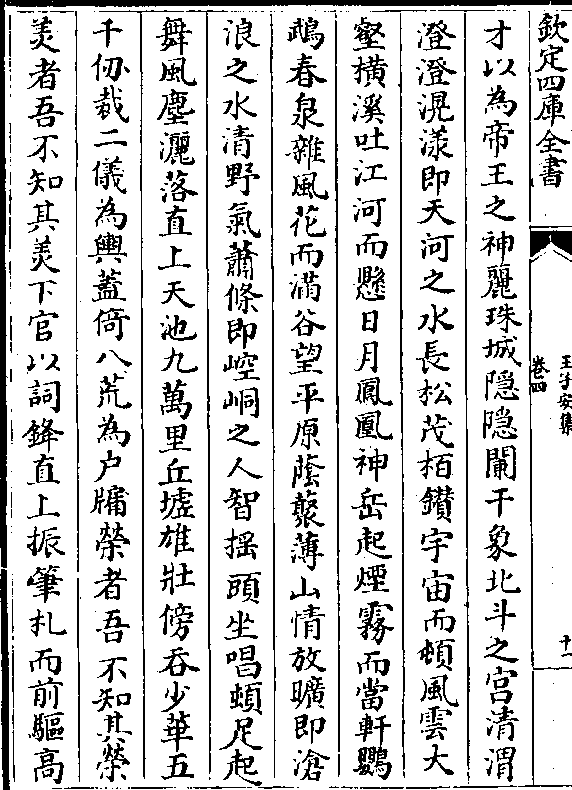 欽定四庫全書
王子安集
卷四
十一
才以為帝王之神麗珠城隠隠闌干象北斗之宫清渭
澄澄滉漾即天河之水長松茂栢鑚宇宙而頓風雲大
壑横溪吐江河而懸日月鳳凰神岳起煙霧而當軒鸚
鵡春泉雜風花而滿谷望平原蔭藂薄山情放曠即滄
浪之水清野氣蕭條即崆峒之人智摇頭坐唱頓足起
舞風塵灑落直上天池九萬里丘墟雄壯傍吞少華五
千仭裁二儀為輿葢倚八荒為户牖榮者吾不知其榮
美者吾不知其美下官以詞鋒直上振筆札而前驅高